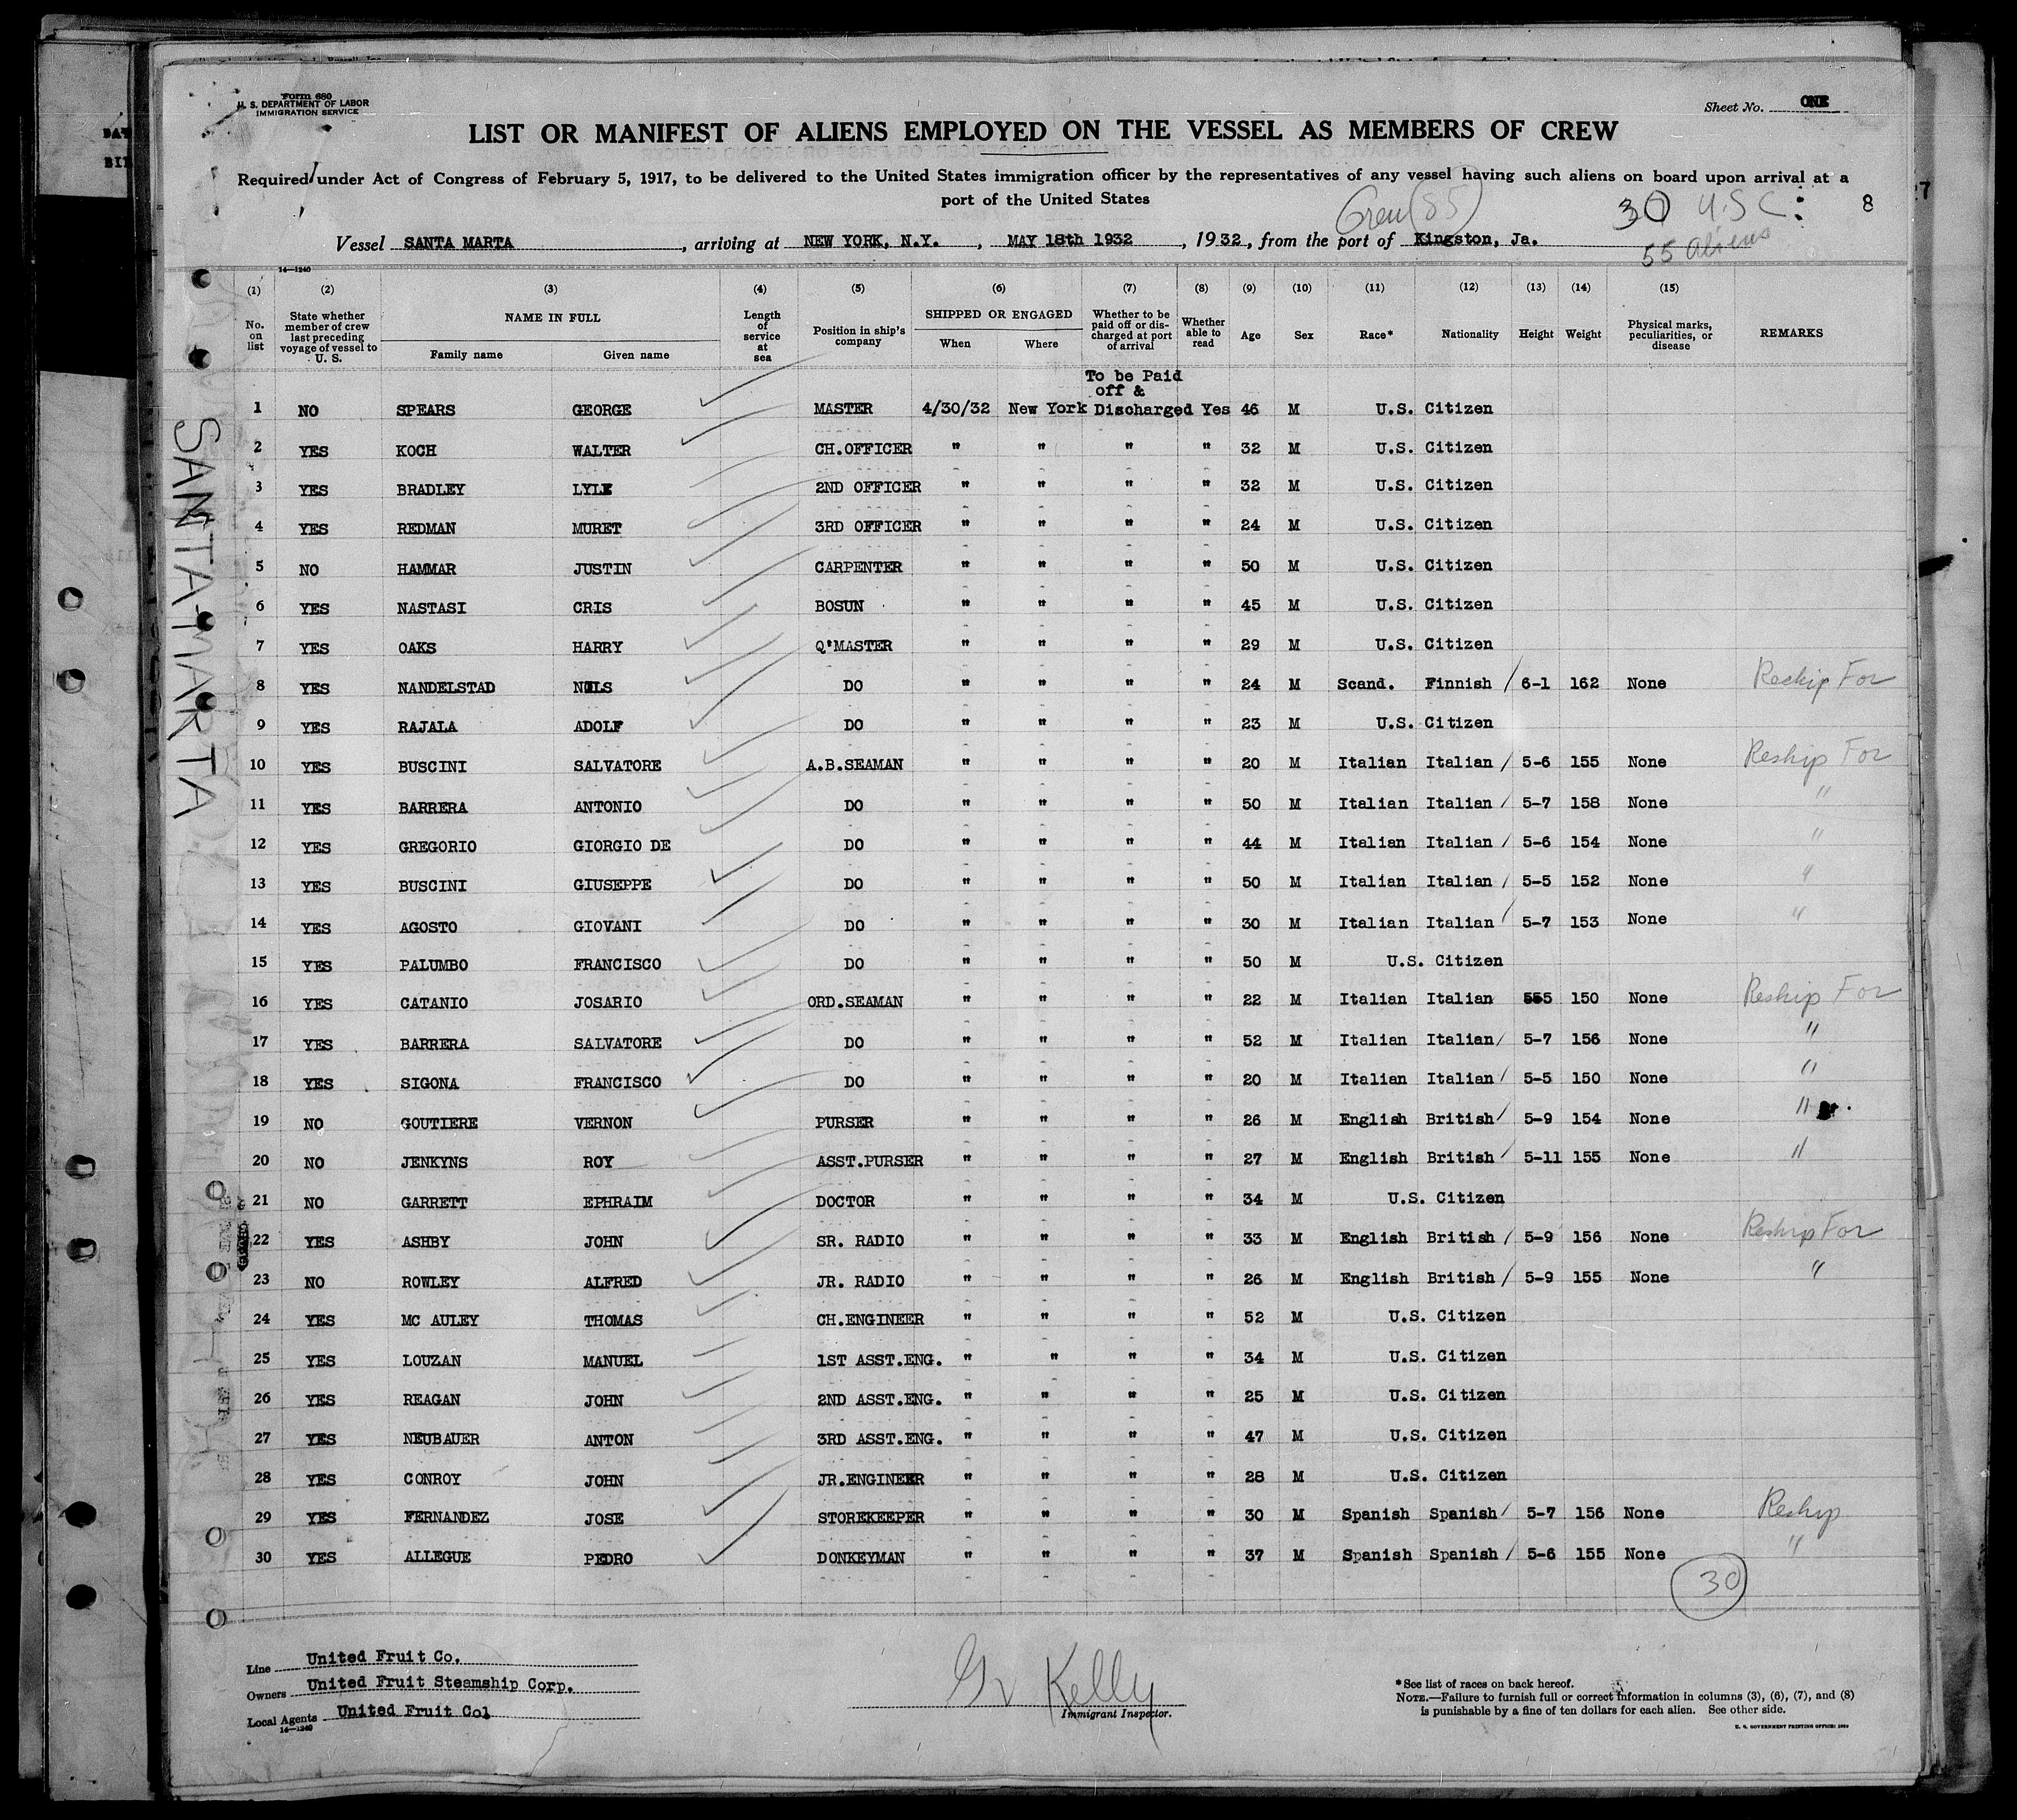 Form 680
U. S. DEPARTMENT OF LABOR
IMMIGRATION SERVICE
Sheet No. ONE
LIST OR MANIFEST OF ALIENS EMPLOYED ON THE VESSEL AS MEMBERS OF CREW
Required under Act of Congress of February 5, 1917, to be delivered to the United States immigration officer by the representatives of any vessel having such aliens on board upon arrival at a
port of the United States
Crew (85) 30 U.S.C. 8
Vessel SANTA MARTA, arriving at NEW YORK, N.Y., MAY 18th 1932, 1932, from the port of Kingston, Ja.
55 Aliens
14—1240
(1) (2) (3) (4) (5) (6) (7) (8) (9) (10) (11) (12) (13) (14) (15)
No. on list State whether member of crew last preceding voyage of vessel to U. S. NAME IN FULL Family name Given name Length of service at sea Position in ship's company SHIPPED OR ENGAGED When Where Whether to be paid off or discharged at port of arrival Whether able to read Age Sex Race* Nationality Height Weight Physical marks, peculiarities, or disease REMARKS
To be Paid
off &
1 NO SPEARS GEORGE MASTER 4/30/32 New York Discharged Yes 46 M U.S. Citizen
2 YES KOCH WALTER CH.OFFICER " " " " 32 M U.S. Citizen
3 YES BRADLEY LYLE 2ND OFFICER " " " " 32 M U.S. Citizen
4 YES REDMAN MURET 3RD OFFICER " " " " 24 M U.S. Citizen
5 NO HAMMAR JUSTIN CARPENTER " " " " 50 M U.S. Citizen
6 YES NASTASI CRIS BOSUN " " " " 45 M U.S. Citizen
7 YES OAKS HARRY Q'MASTER " " " " 29 M U.S. Citizen
8 YES NANDELSTAD NILS DO " " " " 24 M Scand. Finnish 6-1 162 None Reship For
9 YES RAJALA ADOLF DO " " " " 23 M U.S. Citizen
10 YES BUSCINI SALVATORE A.B.SEAMAN " " " " 20 M Italian Italian 5-6 155 None Reship For
11 YES BARRERA ANTONIO DO " " " " 50 M Italian Italian 5-7 158 None "
12 YES GREGORIO GIORGIO DE DO " " " " 44 M Italian Italian 5-6 154 None "
13 YES BUSCINI GIUSEPPE DO " " " " 50 M Italian Italian 5-5 152 None "
14 YES AGOSTO GIOVANI DO " " " " 30 M Italian Italian 5-7 153 None "
15 YES PALUMBO FRANCISCO DO " " " " 50 M U.S. Citizen
16 YES CATANIO JOSARIO ORD.SEAMAN " " " " 22 M Italian Italian 555 150 None Reship For
17 YES BARRERA SALVATORE DO " " " " 52 M Italian Italian 5-7 156 None "
18 YES SIGONA FRANCISCO DO " " " " 20 M Italian Italian 5-5 150 None "
19 NO GOUTIERE VERNON PURSER " " " " 26 M English British 5-9 154 None "
20 NO JENKYNS ROY ASST.PURSER " " " " 27 M English British 5-11 155 None "
21 NO GARRETT EPHRAIM DOCTOR " " " " 34 M U.S. Citizen
22 YES ASHBY JOHN SR. RADIO " " " " 33 M English British 5-9 156 None Reship For
23 NO ROWLEY ALFRED JR. RADIO " " " " 26 M English British 5-9 155 None "
24 YES MC AULEY THOMAS CH.ENGINEER " " " " 52 M U.S. Citizen
25 YES LOUZAN MANUEL 1ST ASST.ENG. " " " " 34 M U.S. Citizen
26 YES REAGAN JOHN 2ND ASST.ENG. " " " " 25 M U.S. Citizen
27 YES NEUBAUER ANTON 3RD ASST.ENG. " " " " 47 M U.S. Citizen
28 YES CONROY JOHN JR.ENGINEER " " " " 28 M U.S. Citizen
29 YES FERNANDEZ JOSE STOREKEEPER " " " " 30 M Spanish Spanish 5-7 156 None Reship
30 YES ALLEGUE PEDRO DONKEYMAN " " " " 37 M Spanish Spanish 5-6 155 None "
30
SANTA MARTA
Line United Fruit Co.
Owners United Fruit Steamship Corp.
Local Agents United Fruit Col
14—1240
Kelly
Immigrant Inspector.
*See list of races on back hereof.
NOTE.—Failure to furnish full or correct information in columns (3), (6), (7), and (8)
is punishable by a fine of ten dollars for each alien. See other side.
U. S. GOVERNMENT PRINTING OFFICE: 1929